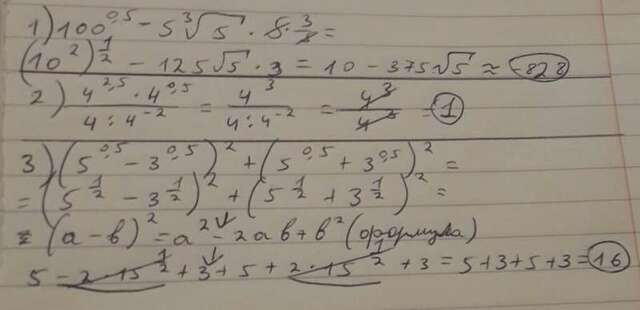 1) 100^0,5 - 5^3√5 · 8 · 3/8 =
(10^2)^1/2 - 125√5 · 3 = 10 - 375√5 ≈ -828
2) (4^2,5 · 4^0,5)/(4 : 4^-2) = 4^3/(4 : 4^-2) = 4^3/4^3 = 1
3) (5^0,5 - 3^0,5)^2 + (5^0,5 + 3^0,5)^2 =
= (5^1/2 - 3^1/2)^2 + (5^1/2 + 3^1/2)^2 =
= (a - b)^2 = a^2 - 2ab + b^2 (формула)
5 - 2 · 15^1/2 + 3 + 5 + 2 · 15^1/2 + 3 = 5+3+5+3 = 16